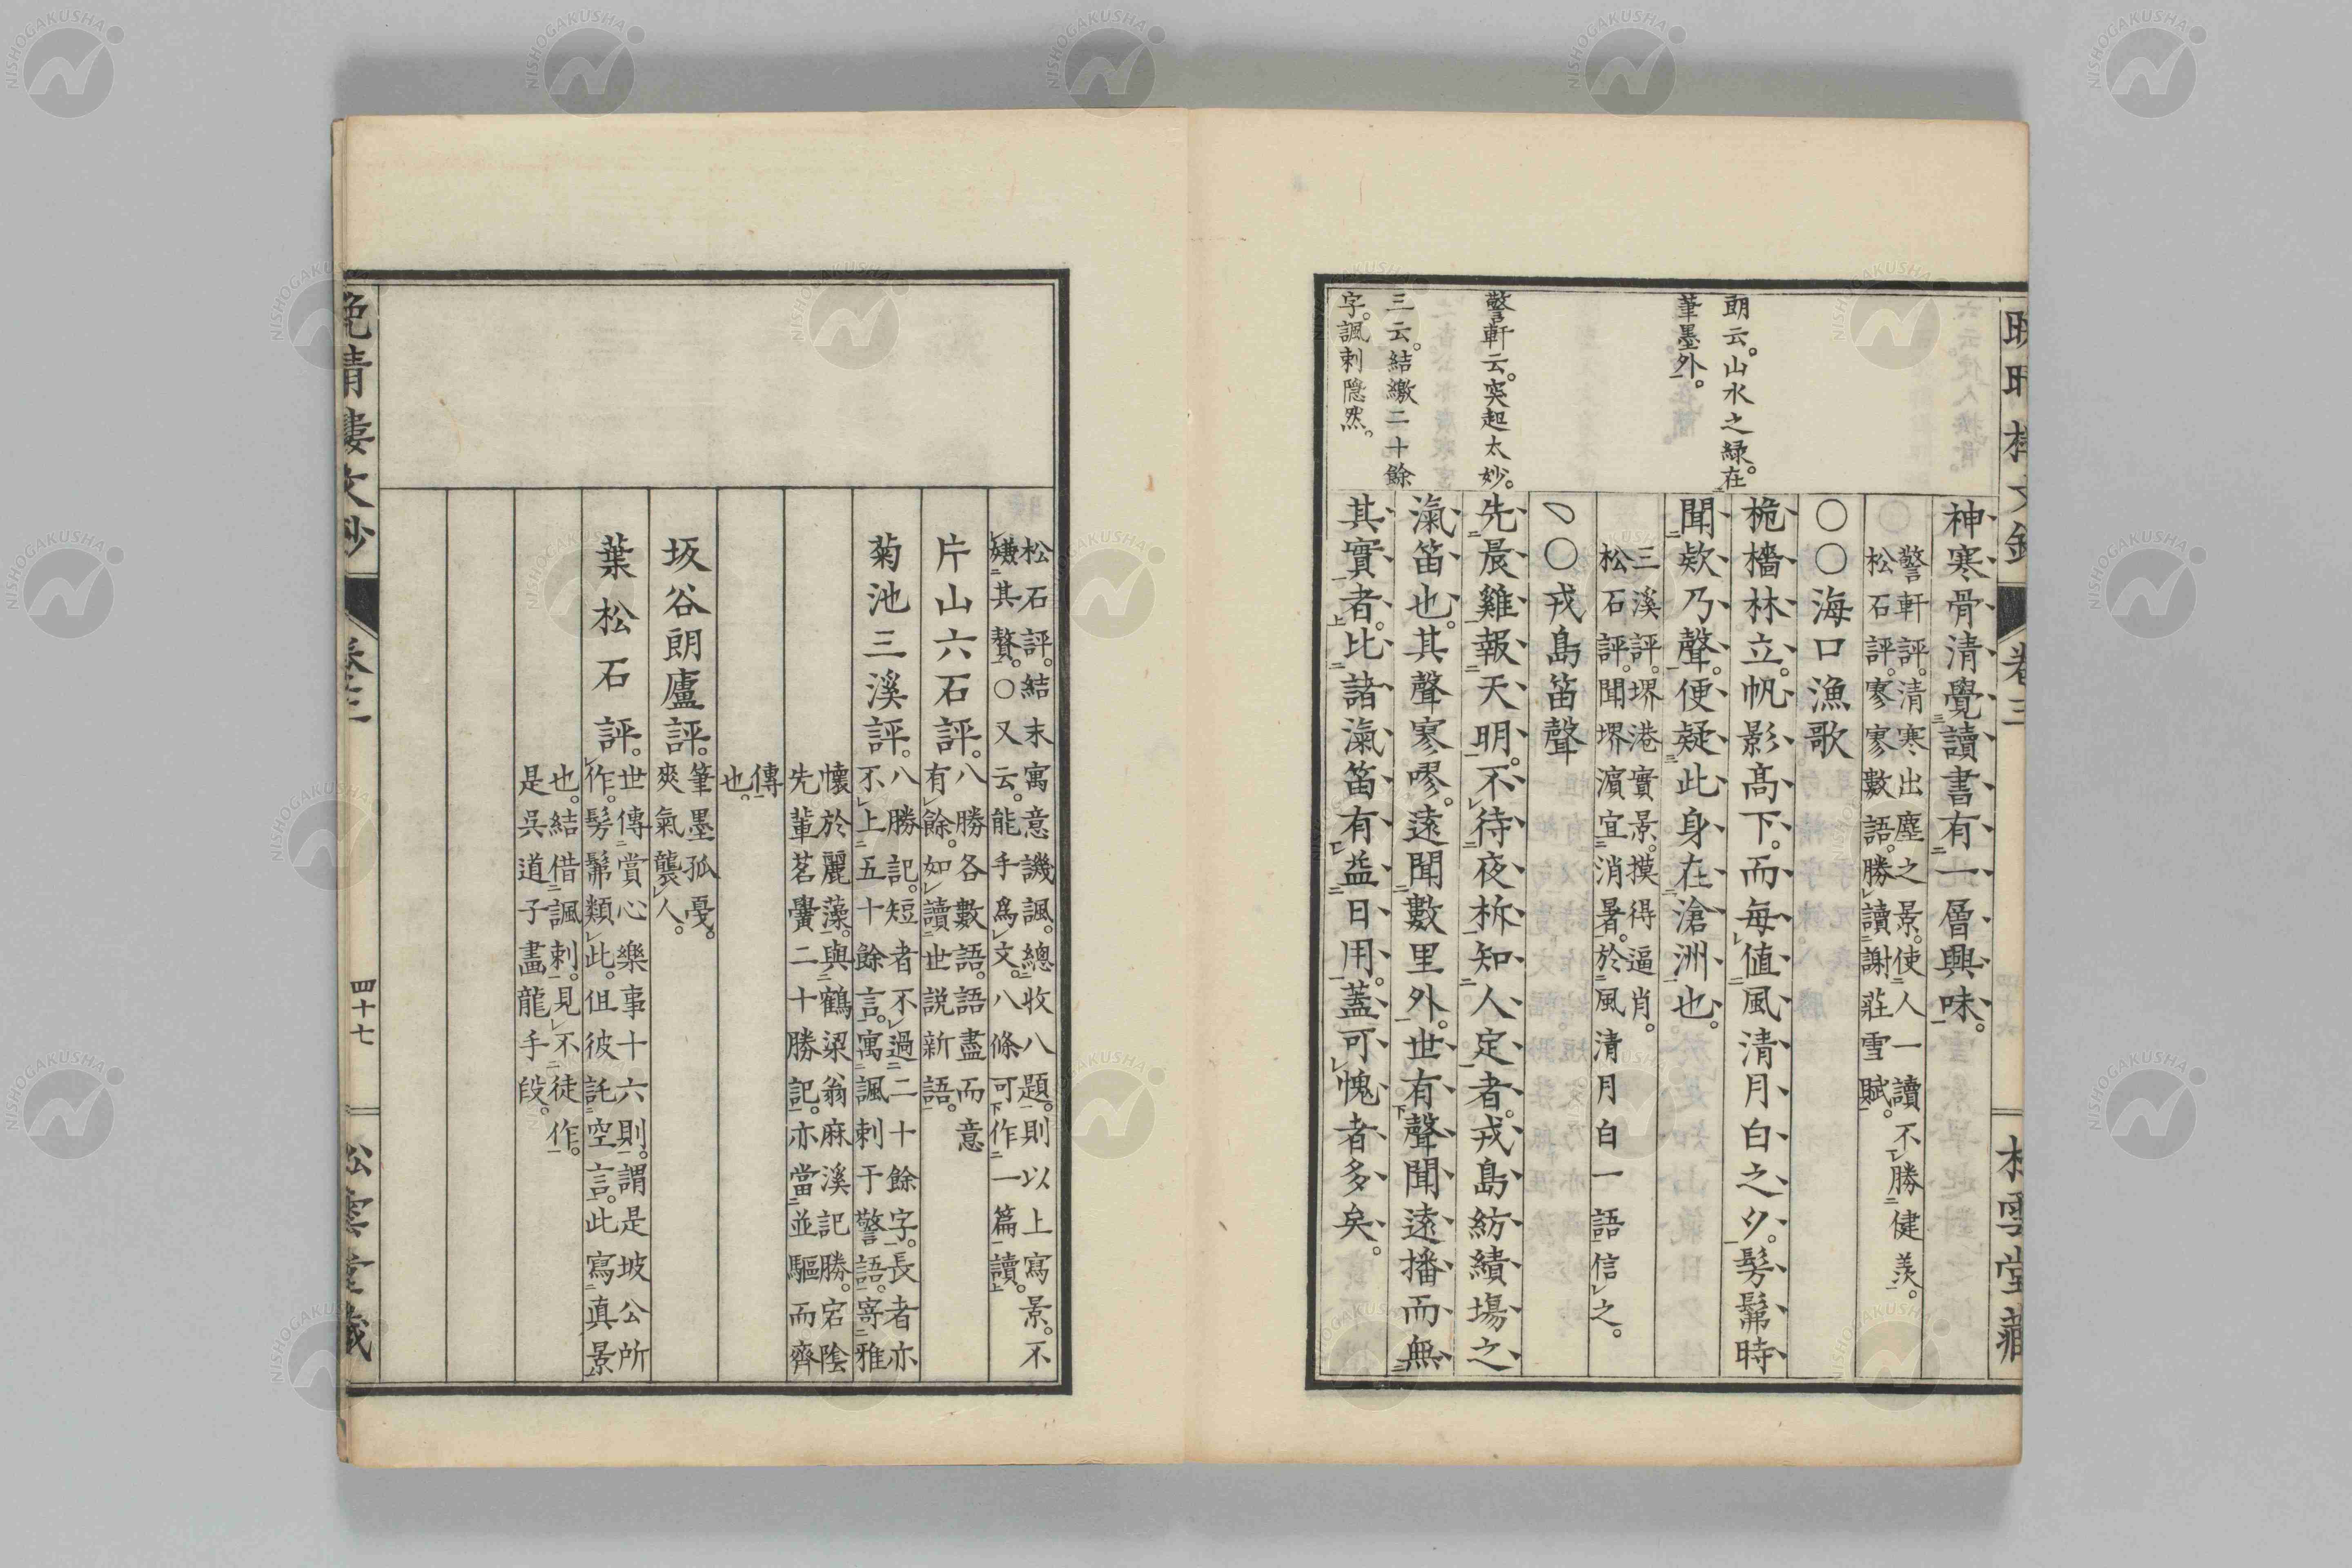 神寒骨清。覺讀書有一層興味。
警軒評。清寒出塵之景。使人一讀不勝健羨。
松石評。寥寥數語。勝讀謝莊雪賦。
〇〇海口漁歌
桅檣林立。帆影髙下。而每値風清月白之夕。髣髴時
聞欸乃聲。便疑此身在滄洲也。
三溪評。堺港實景。摸得逼肖。
松石評。聞堺濵宜消暑。於風清月白一語信之。
〇戎島笛聲
先晨雞報天明。不待夜柝知人定者。戎島紡績塲之
滊笛也。其聲寥嘐。遠聞數里外。世有聲聞遠播而無
其實者。比諸滊笛有益日用。蓋可愧者多矣。
朗云。山水之緑。在
筆墨外。
警軒云。突起太妙。
三云。結繳二十餘
字。諷刺隠然。
卷三
松雲堂藏
松石評。結末寓意譏諷。總收八題。則以上寫景。不
嫌其贅。〇又云。能手爲文。八條可作一篇讀。
片山六石評。八勝各數語。語盡而意
有餘。如讀世説新語。
菊池三溪評。八勝記。短者不過二十餘字。長者亦
不上五十餘言。寓諷刺于警語。寄雅
懷於麗藻。與鶴梁翁麻溪記勝。宕陰
先輩茗黌二十勝記。亦當並驅而齊
傳
也。
坂谷朗廬評。筆墨孤戞。
爽氣襲人。
葉松石評。世傳賞心樂事十六則。謂是坡公所
作。髣髴類此。但彼託空言。此寫真景
也。結借諷刺。見不徒作。
是呉道子畫龍手段。
晩晴樓文鈔
卷三
四十七
松雲堂藏